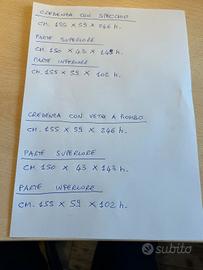 CREDENZA CON SPECCHIO
CM. 155 X 59 X 246 h.
PARTE SUPERIORE
CM. 150 X 43 X 143 h.
PARTE INFERIORE
CM. 155 X 59 X 102 h.
CREDENZA CON VETRI A ROMBO
CM. 155 X 59 X 246 h.
PARTE SUPERIORE
CM 150 X 43 X 143 h.
PARTE INFERIORE
CM. 155 X 59 X 102 h.
subito